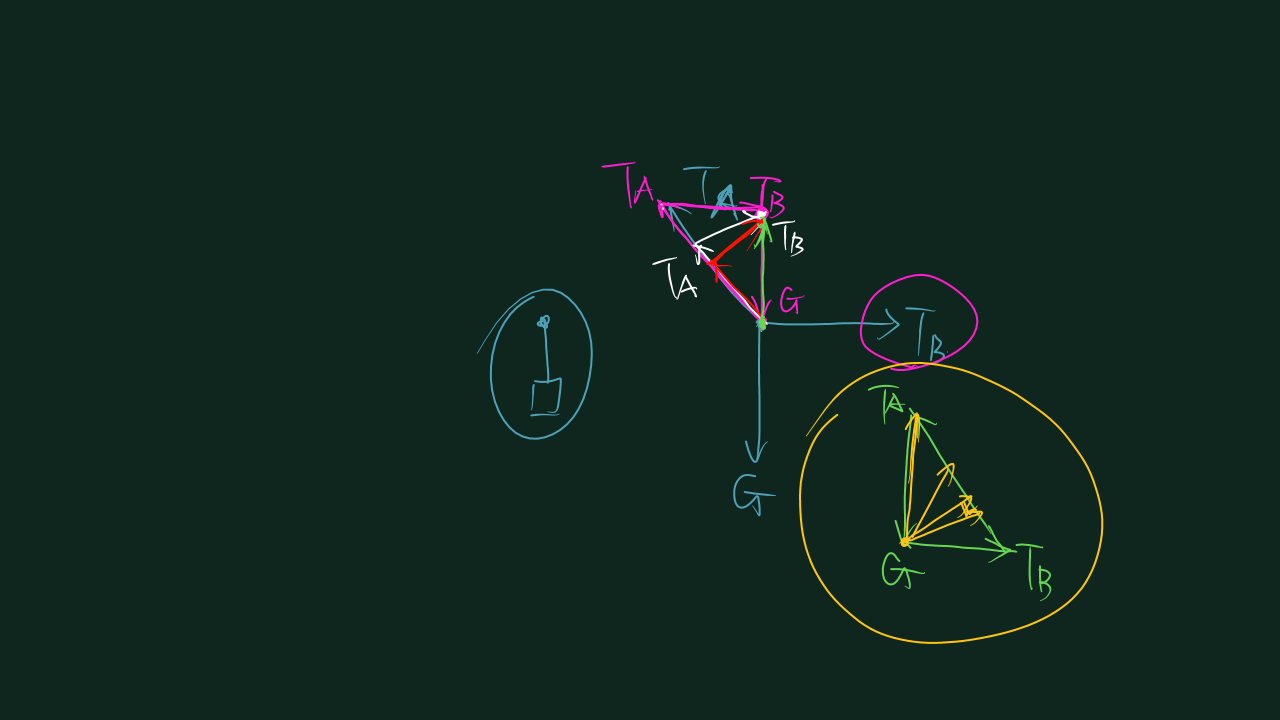 T_A
T_A
T_B
T_B
T_A
G
T_B
T_A
G
G
T_B